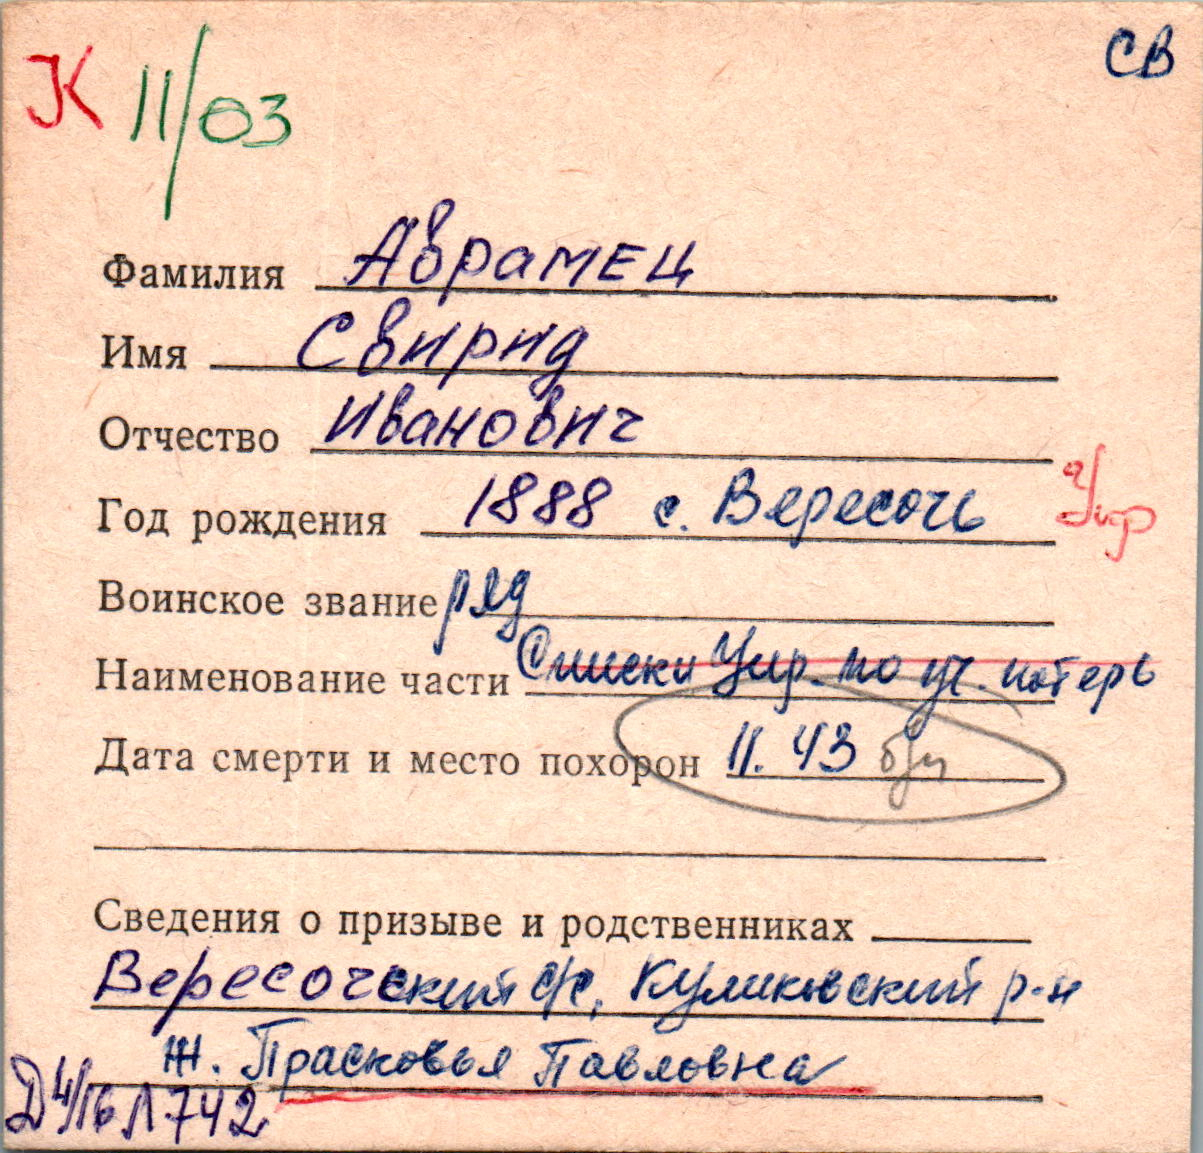 К 11/03
СВ
Фамилия Аврамец
Имя Свирид
Отчество Иванович
Год рождения 1888 с. Вересочь
Воинское звание ряд
Наименование части Списки Упр. по уч. потерь
Дата смерти и место похорон 11. 43
Сведения о призыве и родственниках
Вересочский с/с, Куликовский р-н
Ж. Прасковья Павловна
Д 4/16 Л 742